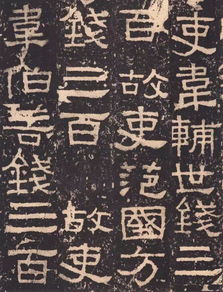 吏韋輔世錢三
百故吏范國方
錢三百 故吏
韋伯善錢三百